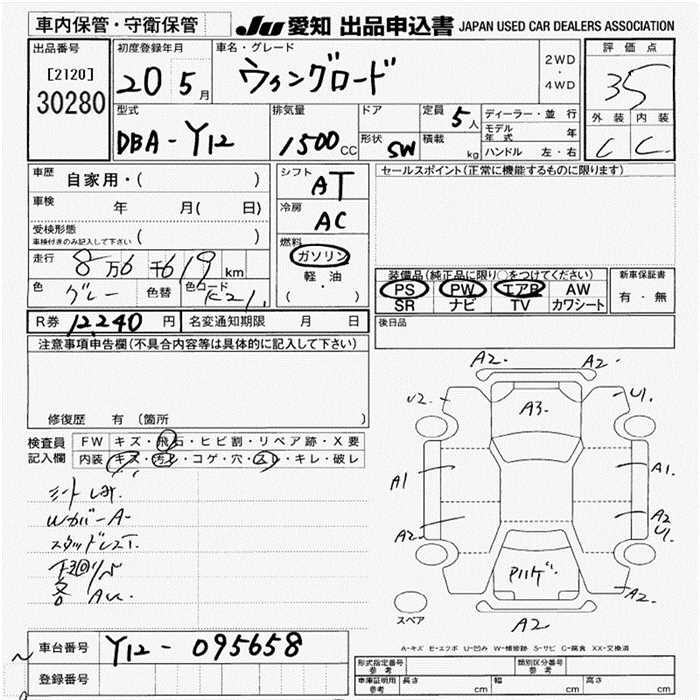 車内保管・守衛保管
JU 愛知 出品申込書 JAPAN USED CAR DEALERS ASSOCIATION
出品番号
[2120]
30280
初度登録年月
20 5月
車名・グレード
ウィングロード
2WD
・
4WD
評価点
3.5
外装 内装
C C
型式
DBA-Y12
排気量
1500 CC
ドア
形状 SW
定員 5人
積載 kg
ディーラー・並行
モデル年式 年
ハンドル 左・右
車歴 自家用・( )
車検 年 月( 日)
受検形態
車検付きのみ記入して下さい ( )
走行 8万6千619 km
色 グレー 色替 色コード K21
シフト AT
冷房 AC
燃料
ガソリン
軽・油
( ・ )
セールスポイント(正常に機能するものに限ります)
装備品(純正品に限り○をつけてください)
PS PW エアB AW
SR ナビ TV カワシート
新車保証書
有・無
後日品
R券 12240 円 名変通知期限 月 日
注意事項申告欄(不具合内容等は具体的に記入して下さい)
修復歴 有 (箇所 )
検査員 FW キズ・飛石・ヒビ割・リペア跡・X要
記入欄 内装 キズ・汚レ・コゲ・穴・スレ・キレ・破レ
A2. A2.
U2. U1.
A3.
A1 A1.
A2. A2
U1.
A2.
A2
スペア
A-キズ E-エクボ U-凹み W-補修跡 S-サビ C-腐食 XX-交換済
車台番号 Y12-095658
登録番号
形式指定番号 参考
類別区分番号 参考
車庫証明用 参考 長さ cm 幅 cm 高さ cm